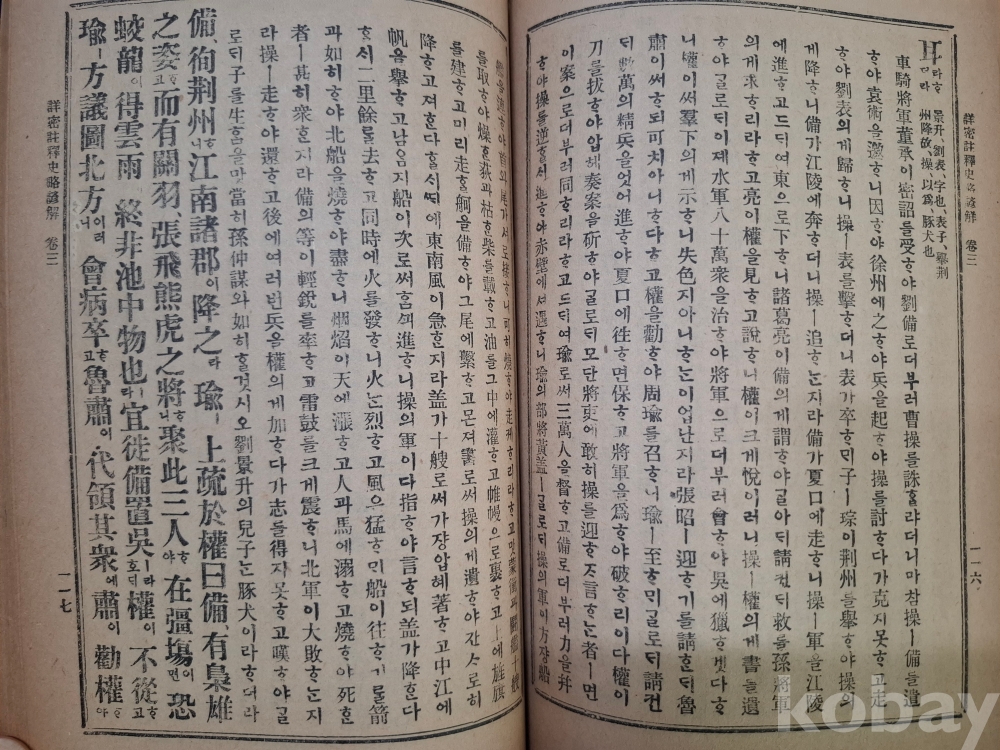 詳密註釋史略諺解 卷三 一一六
耳라ᄒᆞ더라 景升、劉表、字也、表子、琮、荊州降故、操、以爲、豚犬也
車騎將軍董承이密詔를受ᄒᆞ야劉備로더부러曹操를誅호랴더니마참操ㅣ備를遣
ᄒᆞ야袁術을邀ᄒᆞ니因ᄒᆞ야徐州에之ᄒᆞ야兵을起ᄒᆞ야操를討ᄒᆞ다가克지못ᄒᆞ고走
ᄒᆞ야劉表의게歸ᄒᆞ니操ㅣ表를擊ᄒᆞ더니表가卒ᄒᆞᄆᆡ子ㅣ琮이荊州를擧ᄒᆞ야操의
게降ᄒᆞ니備가江陵에奔ᄒᆞ더니操ㅣ追ᄒᆞᄂᆞᆫ지라備가夏口에走ᄒᆞ니操ㅣ軍을江陵
에進ᄒᆞ고드ᄃᆡ여東으로下ᄒᆞ니諸葛亮이備의게謂ᄒᆞ야ᄀᆞᆯ아ᄃᆡ請컨ᄃᆡ救를孫將軍
의게求ᄒᆞ리라ᄒᆞ고亮이權을見ᄒᆞ고說ᄒᆞ니權이크게悅이러니操ㅣ權의게書를遺
ᄒᆞ야ᄀᆞᆯ로ᄃᆡ이제水軍八十萬衆을治ᄒᆞ야將軍으로더부러會ᄒᆞ야吳에獵ᄒᆞ겟다ᄒᆞ
니權이써羣下의게示ᄒᆞ니失色지아니ᄒᆞᄂᆞᆫ이업난지라張昭ㅣ迎ᄒᆞ기를請ᄒᆞᆫᄃᆡ魯
肅이써되可치아니ᄒᆞ다ᄒᆞ고權을勸ᄒᆞ야周瑜를召ᄒᆞ니瑜ㅣ至ᄒᆞᄆᆡᄀᆞᆯ로ᄃᆡ請컨
ᄃᆡ數萬의精兵을엇어進ᄒᆞ야夏口에徃ᄒᆞ면保ᄒᆞ고將軍을爲ᄒᆞ야破ᄒᆞ리이다權이
刀를拔ᄒᆞ야압헤奏案을斫ᄒᆞ야ᄀᆞᆯ로ᄃᆡ모단將吏에敢히操를迎ᄒᆞᄌᆞ言ᄒᆞᄂᆞᆫ者ㅣ면
이案으로더부러同ᄒᆞ리라ᄒᆞ고드ᄃᆡ여瑜로써三萬人을督ᄒᆞ고備로더부러力을幷
ᄒᆞ야操를逆ᄒᆞ니進ᄒᆞ야赤壁에셔遇ᄒᆞ니瑜의部將黃蓋ㅣᄀᆞᆯ로ᄃᆡ操의軍이方쟝船
尾가서로接ᄒᆞ니可히燒ᄒᆞ야走케ᄒᆞ리라ᄒᆞ고
를取ᄒᆞ야燥ᄒᆞᆫ荻과枯ᄒᆞᆫ柴를載ᄒᆞ고油를그中에灌ᄒᆞ고帷幔으로裹ᄒᆞ고上에旌旗
를建ᄒᆞ고미리走ᄒᆞᆯ舸을備ᄒᆞ야그尾에繫ᄒᆞ고몬져書로써操의게遺ᄒᆞ야잔ᄉᆞ로히
降ᄒᆞ고져ᄒᆞᆫ다ᄒᆞᆯᄉᆡᄯᅢ에東南風이急ᄒᆞᆫ지라蓋가十艘로써가쟝압헤著ᄒᆞ고中江에
帆을擧ᄒᆞ고남은지船이次로써홈ᄭᅴ進ᄒᆞ니操의軍이다指ᄒᆞ야言ᄒᆞ되蓋가降ᄒᆞᆫ다
ᄒᆞᆯᄉᆡ二里餘를去ᄒᆞ고同時에火를發ᄒᆞ니火ᄂᆞᆫ烈ᄒᆞ고風은猛ᄒᆞᄆᆡ船이往ᄒᆞ기를箭
과如히ᄒᆞ야北船을燒ᄒᆞ야盡ᄒᆞ니烟焰이天에漲ᄒᆞ고人과馬에溺ᄒᆞ고燒ᄒᆞ야死ᄒᆞᆫ
者ㅣ甚히衆ᄒᆞᆫ지라備의等이輕銳를率ᄒᆞ고雷鼓를크게震ᄒᆞ니北軍이大敗ᄒᆞᄂᆞᆫ지
라操ㅣ走ᄒᆞ야還ᄒᆞ고後에여러번兵을權의게加ᄒᆞ다가志를得지못ᄒᆞ고嘆ᄒᆞ야ᄀᆞᆯ
로ᄃᆡ子를生홈을맛당히孫仲謀와如히ᄒᆞᆯ것시오劉景升의兒子ᄂᆞᆫ豚犬이라ᄒᆞ더라
備ㅣ徇荆州ᄒᆞ니江南諸郡이降之라瑜ㅣ上疏於權曰備、有梟雄
之姿ᄒᆞ고而有關羽、張飛熊虎之將ᄒᆞ니聚此三人ᄒᆞ야在疆埸이면恐
蛟龍이得雲雨ㅣ終非池中物也라宜徙備置吳ㅣ라ᄒᆞᄃᆡ權이不從ᄒᆞ고
瑜ㅣ方議圖北方이러니會病卒ᄒᆞ고魯肅이代領其衆에肅이勸權ᄒᆞ야
詳密註釋史略諺解 卷三 一一七
kobay